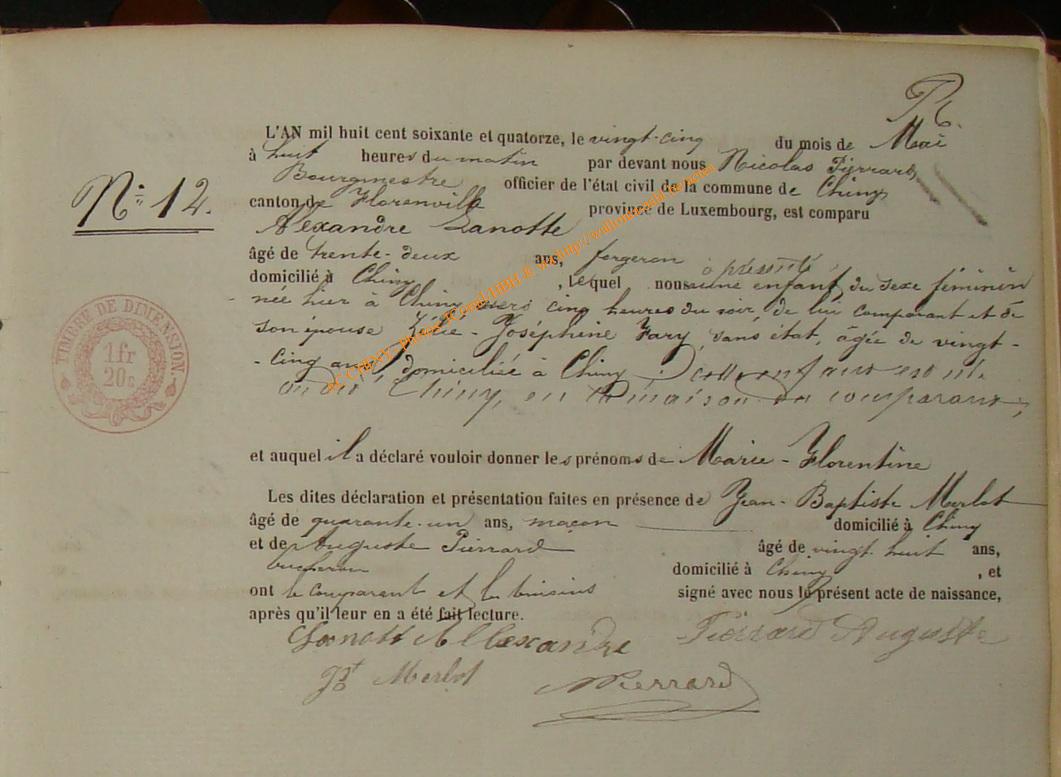 L'AN mil huit cent soixante et quatorze, le vingt-cinq du mois de Mai
à huit heures du matin par devant nous Nicolas Pierrard
Bourgmestre officier de l'état civil de la commune de Chiny
N° 12.
canton de Florenville province de Luxembourg, est comparu
Alexandre Lanotte
âgé de trente-deux ans, forgeron
domicilié à Chiny, lequel nous a présenté une enfant du sexe féminin
née hier à Chiny vers cinq heures du soir, de lui comparant et de
son épouse Zélie-Joséphine Fary sans état, âgée de vingt-
cinq ans, domiciliée à Chiny; cette enfant est née
au dit Chiny, en la maison du comparant;
TIMBRE DE DIMENSION
1 fr
20c
et auquel il a déclaré vouloir donner les prénoms de Marie-Florentine
Les dites déclaration et présentation faites en présence de Jean-Baptiste Merlot
âgé de quarante-un ans, maçon domicilié à Chiny
et de Auguste Pierrard âgé de vingt huit ans,
bucheron domicilié à Chiny, et
ont le comparant et les témoins signé avec nous le présent acte de naissance,
après qu'il leur en a été fait lecture.
Lanott Allexandre Pierrard Auguste
Jbt Merlot NPierrard